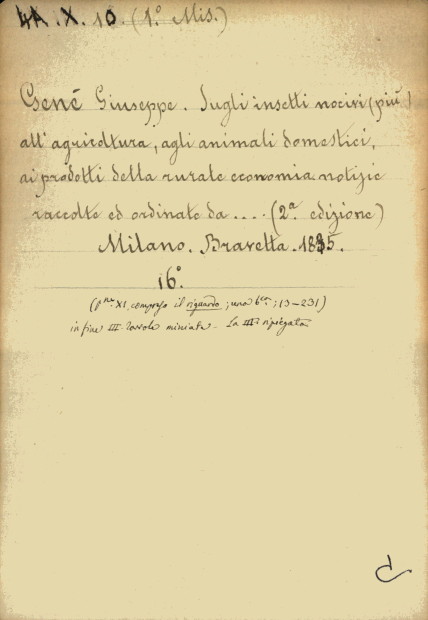 4A.X.10 (1.° Mis.)
Gené Giuseppe. Sugli insetti nocivi (più)
all'agricoltura, agli animali domestici,
ai prodotti della rurale economia notizie
raccolte ed ordinate da .... (2.ª edizione)
Milano. Bravetta. 1835.
16.°
(p.ne XI compreso il riguardo; una b.ca; 13-231)
in fine III. Tavole miniate. La III.ª ripiegata